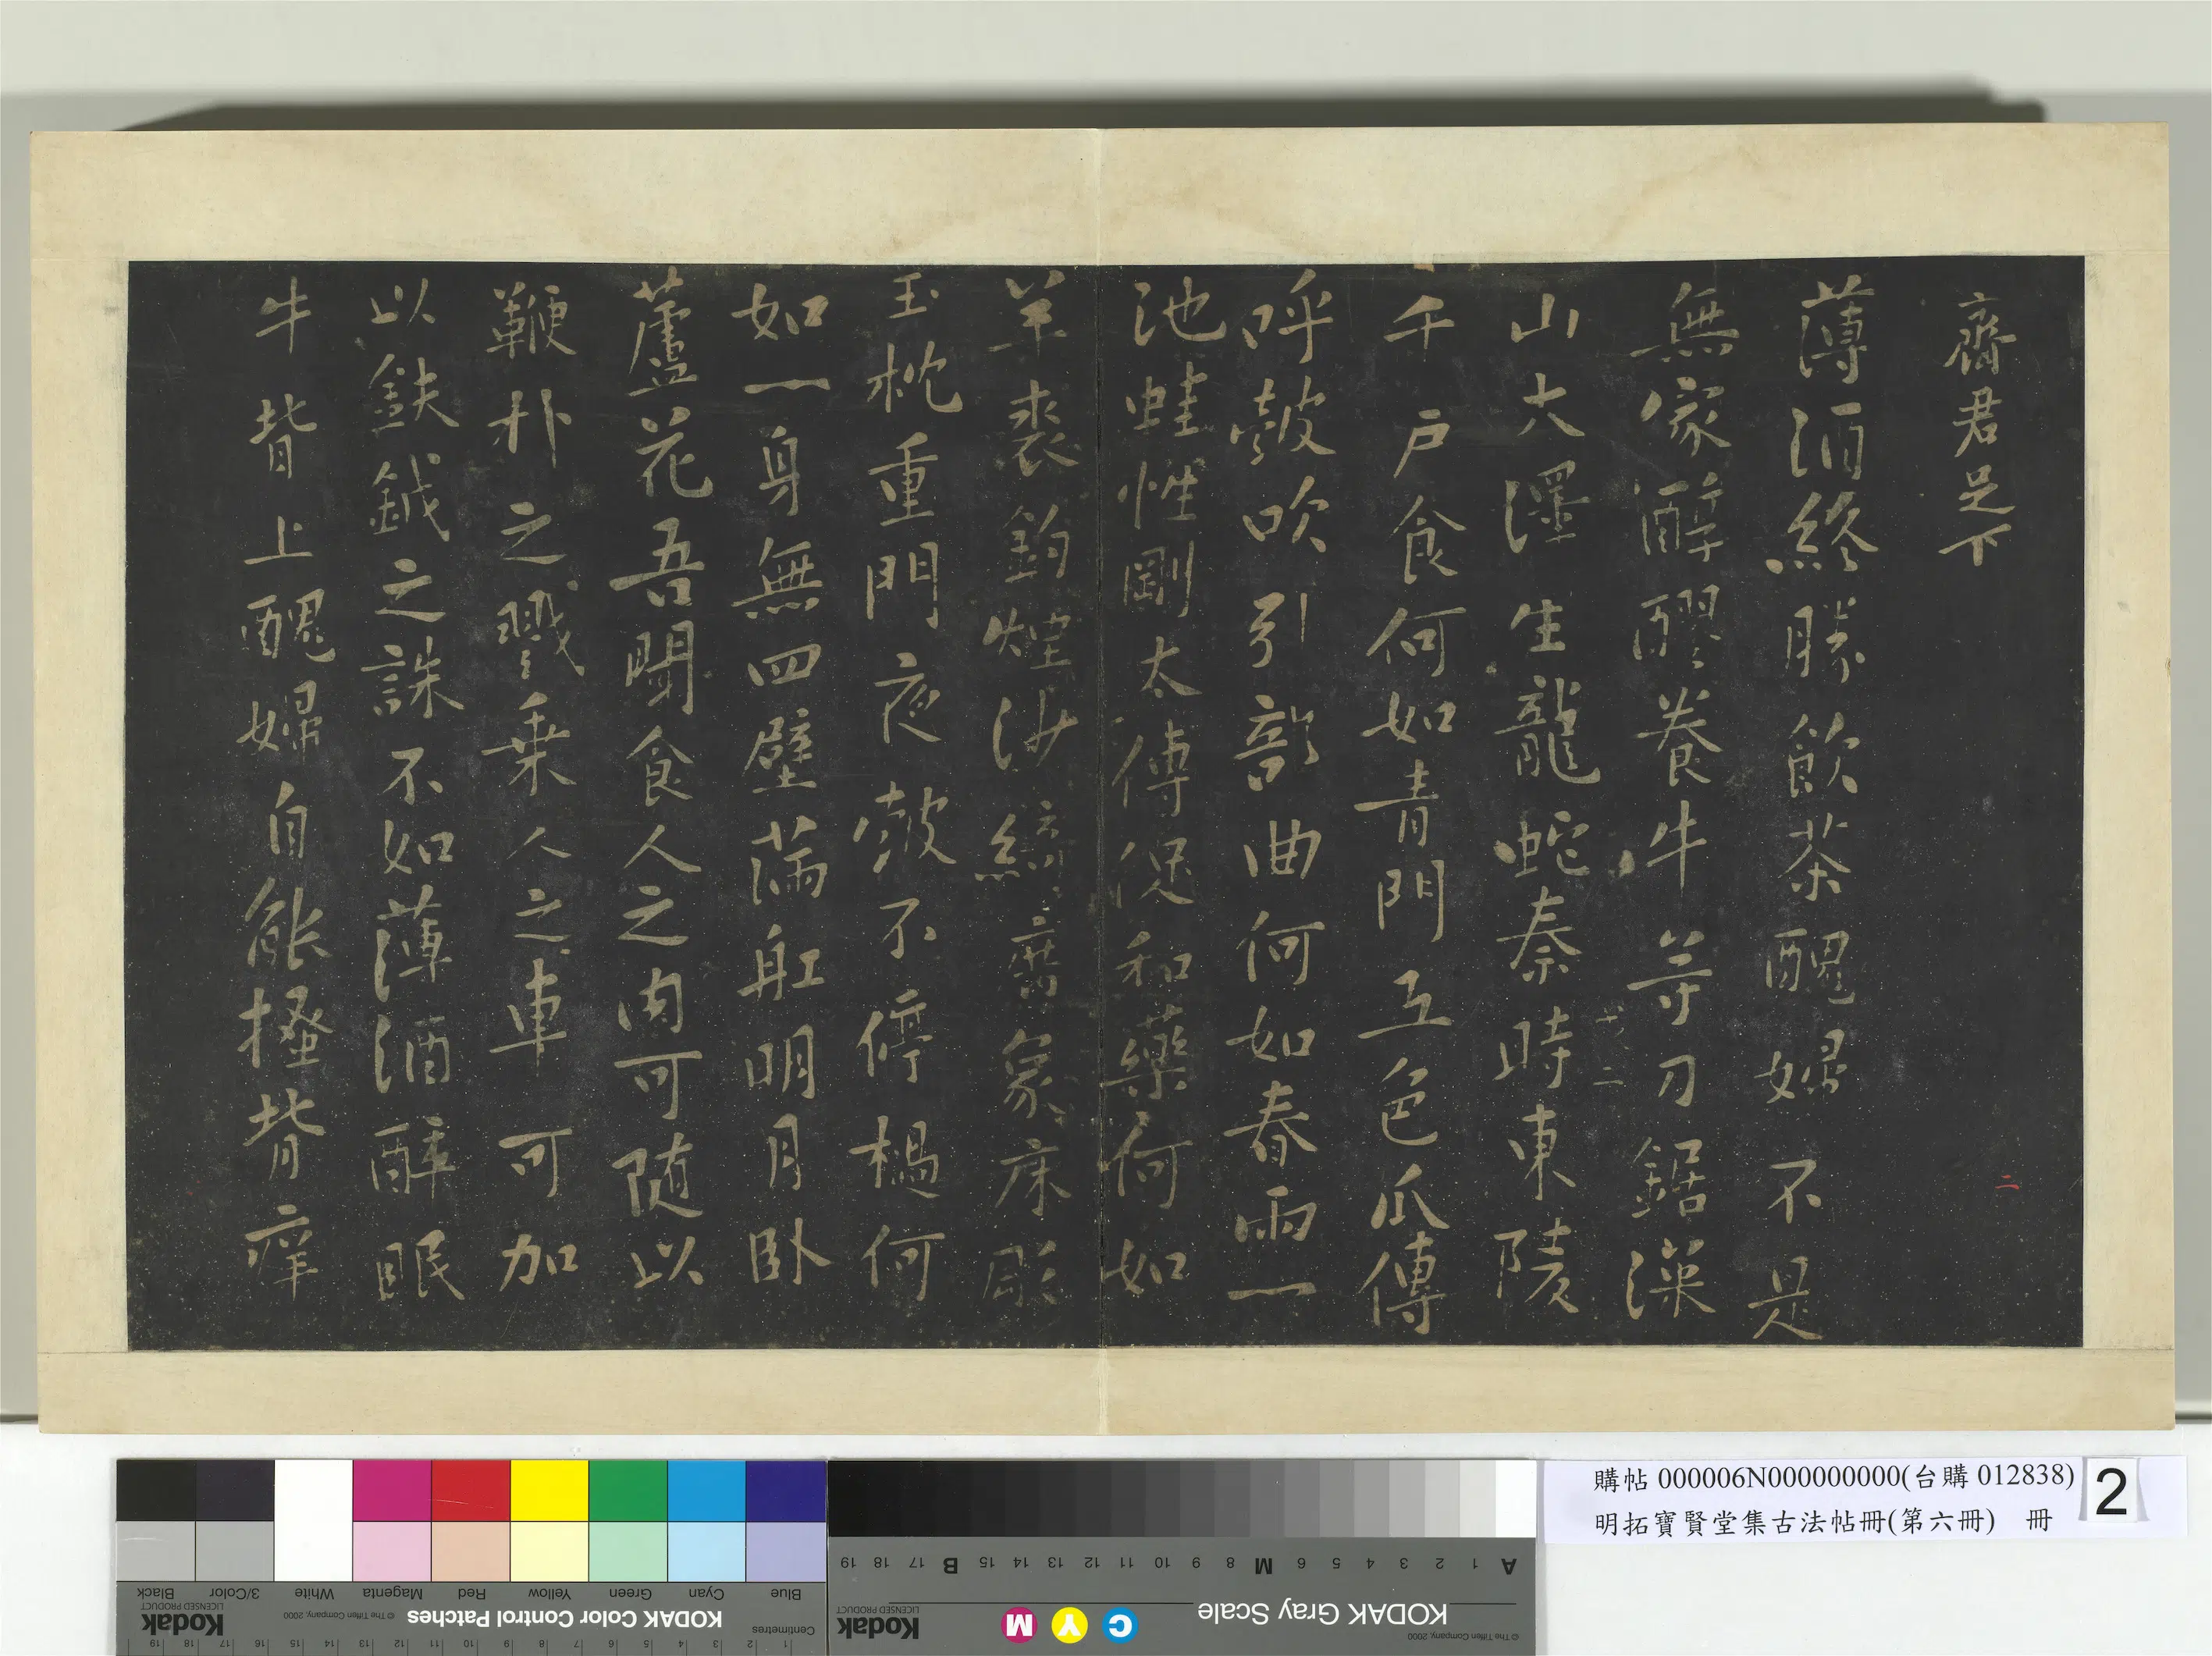 齋君足下
薄酒終勝飲茶醜婦不是
無家醇醪養牛等刀鋸深
山大澤生龍蛇秦時東陵
千戶食何如青門五色瓜傳
呼鼓吹引部曲何如春雨一
池蛙性剛太傅促和藥何如
羊裘釣煙沙綺席象床彫
玉枕重門夜鼓不停檛何
如一身無四壁滿船明月臥
蘆花吾聞食人之肉可隨以
鞭朴之戮乘人之車可加
以鈇鉞之誅不如薄酒醉眠
牛背上醜婦自能搔背痒
二
購帖 000006N000000000(台購 012838)
明拓寶賢堂集古法帖冊(第六冊) 冊
2
Black 3/Color White Magenta Red Yellow Green Cyan Blue
Kodak
LICENSED PRODUCT
© The Tiffen Company, 2000
KODAK Color Control Patches
Centimetres
1 2 3 4 5 6 7 8 9 10 11 12 13 14 15 16 17 18 19
A 1 2 3 4 5 6 M 8 9 10 11 12 13 14 15 B 17 18 19
KODAK Gray Scale
C Y M
Kodak
LICENSED PRODUCT
© The Tiffen Company, 2000